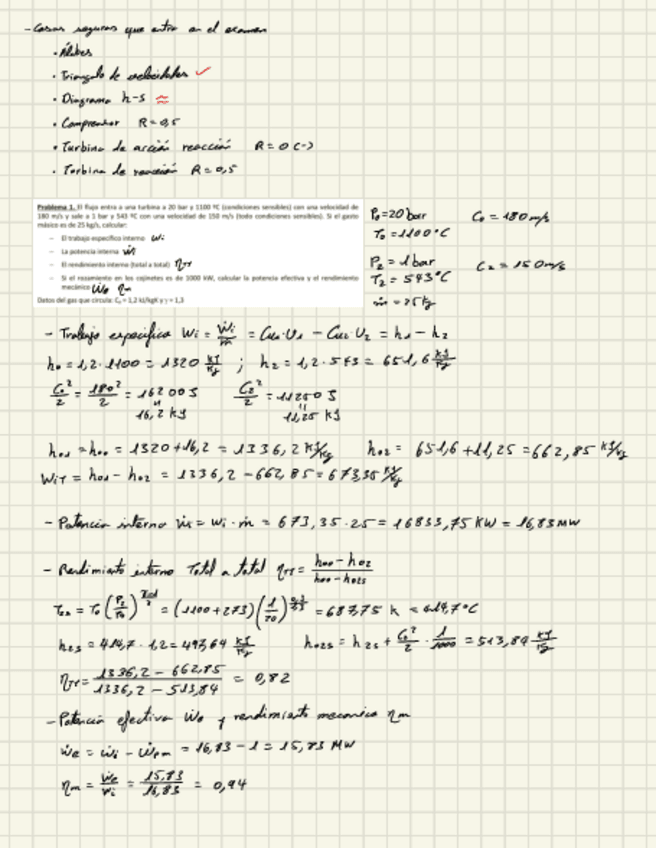 - Cosas seguras que entra en el examen
• Álabes
• Triangulo de velocidades ✓
• Diagrama h-s ≈
• Compresor R=0,5
• Turbina de acción reacción R=0 (->)
• Turbina de reacción R=0,5
Problema 1. El flujo entra a una turbina a 20 bar y 1100 ºC (condiciones sensibles) con una velocidad de
180 m/s y sale a 1 bar y 543 ºC con una velocidad de 150 m/s (todo condiciones sensibles). Si el gasto
másico es de 25 kg/s, calcular:
– El trabajo específico interno wi
– La potencia interna ẇi
– El rendimiento interno (total a total) ηTT
– Si el rozamiento en los cojinetes es de 1000 kW, calcular la potencia efectiva y el rendimiento
mecánico ẇe ηm
Datos del gas que circula: Cp = 1,2 kJ/kgK y γ = 1,3
P0=20bar C0=180m/s
T0=1100°C
P2=1bar C2=150m/s
T2=543°C
ṁ=25kg
- Trabajo específico Wi = Ẇi/ṁ = Cu1·U1 - Cu2·U2 = h1 - h2
h0=1,2·1100=1320 kJ/kg ; h2=1,2·543=651,6 kJ/kg
C0²/2 = 180²/2 = 16200J C2²/2 = 11250J
16,2 kJ 11,25 kJ
h01=h00=1320+16,2=1336,2 kJ/kg h02= 651,6+11,25=662,85 kJ/kg
WiT = h01-h02 = 1336,2-662,85=673,35 kJ/kg
- Potencia interna ẇi = wi·ṁ = 673,35·25=16833,75 KW = 16,83MW
- Rendimiento interno Total a total ηTT = (h00-h02)/(h00-h02s)
T2s = T0 (P2/P0)^(γ-1/γ) = (1100+273)(1/20)^(0,3/1,3) = 687,75 k = 414,7°C
h2s = 414,7·1,2=497,64 kJ/kg h02s = h2s + C2²/2 · 1/1000 = 513,84 kJ/kg
ηTT = (1336,2-662,85)/(1336,2-513,84) = 0,82
- Potencia efectiva Ẇe y rendimiento mecanico ηm
ẇe = ẇi - ẇpm = 16,83-1 = 15,83 MW
ηm = ẇe/ẇi = 15,83/16,83 = 0,94